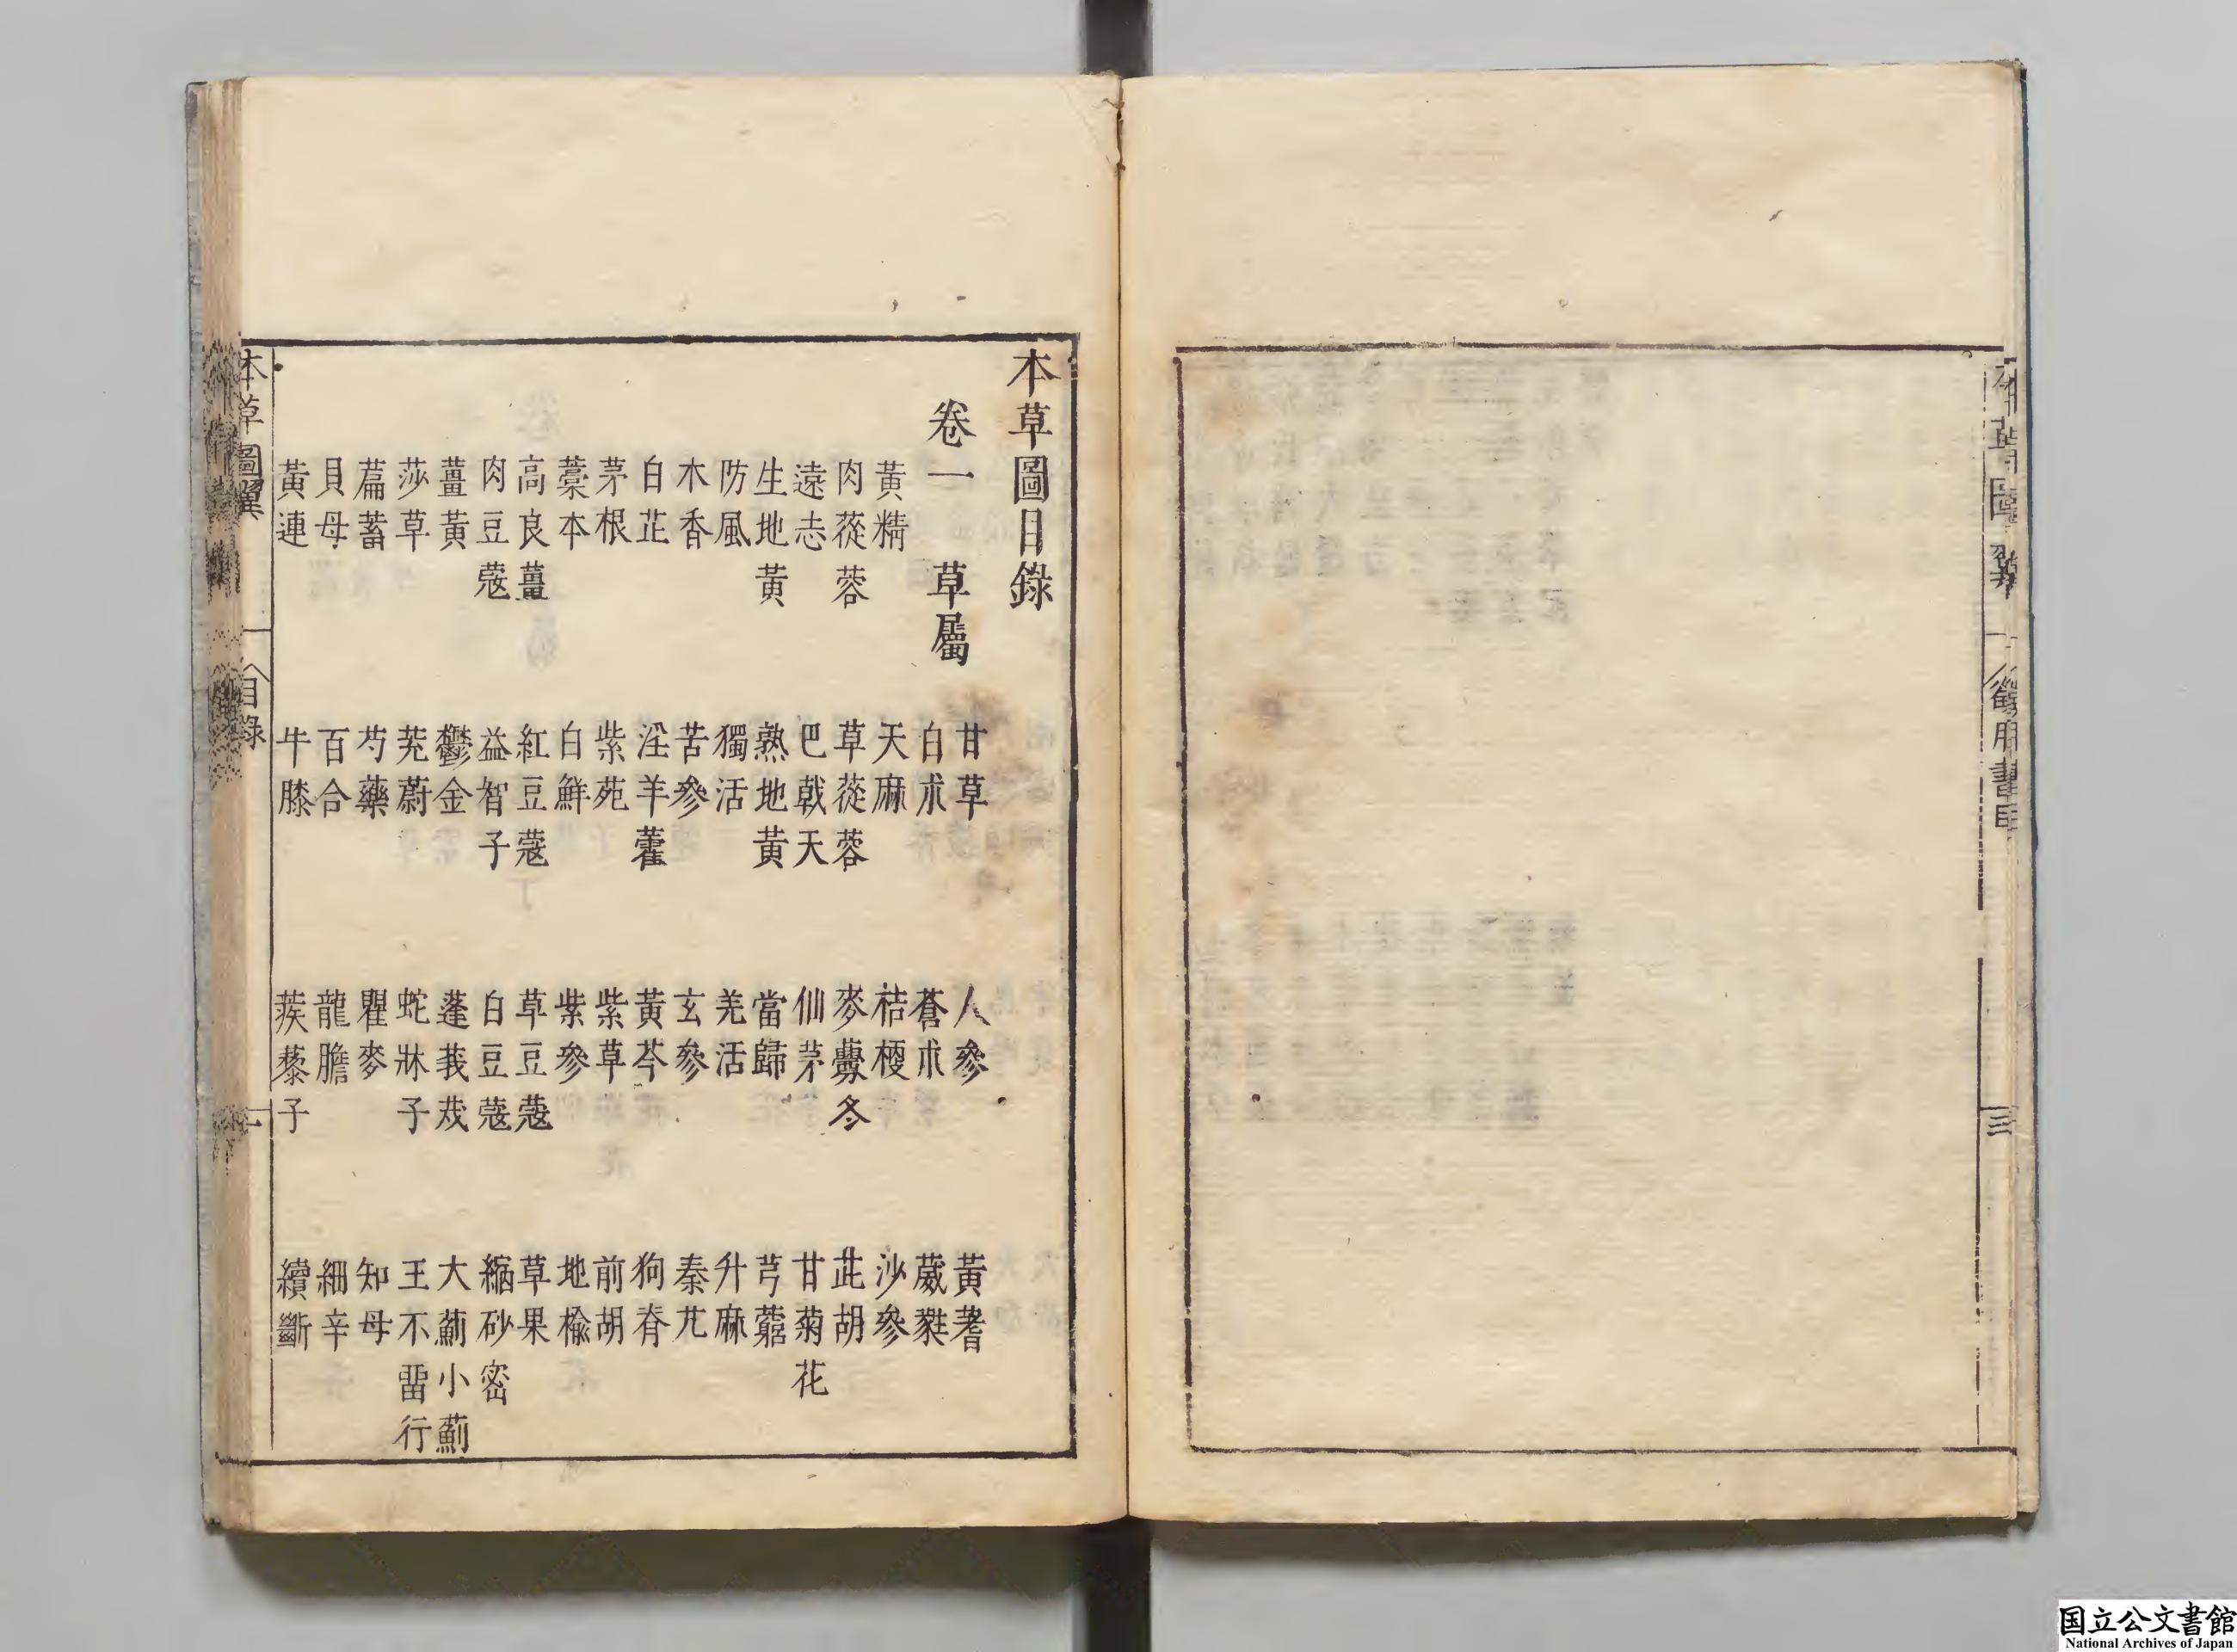 三
本草圖目錄
卷一　草屬
甘草　人參　黃耆
白朮　蒼朮　葳蕤
黃精　天麻　桔梗　沙參
肉蓯蓉　草蓯蓉　麥虋冬　茈胡
遠志　巴戟天　仙茅　甘菊花
生地黃　熟地黃　當歸　芎藭
防風　獨活　羌活　升麻
木香　苦參　玄參　秦艽
白芷　淫羊藿　黃芩　狗脊
茅根　紫菀　紫草　前胡
藁本　白鮮　紫參　地榆
高良薑　紅豆蔻　草豆蔻　草果
肉豆蔻　益智子　白豆蔻　縮砂密
薑黃　鬱金　蓬莪茂　大薊小薊
莎草　茺蔚　蛇牀子　王不畱行
萹蓄　芍藥　瞿麥　知母
貝母　百合　龍膽　細辛
黃連　牛膝　蒺藜子　續斷
本草圖翼　目錄　一
国立公文書館
National Archives of Japan